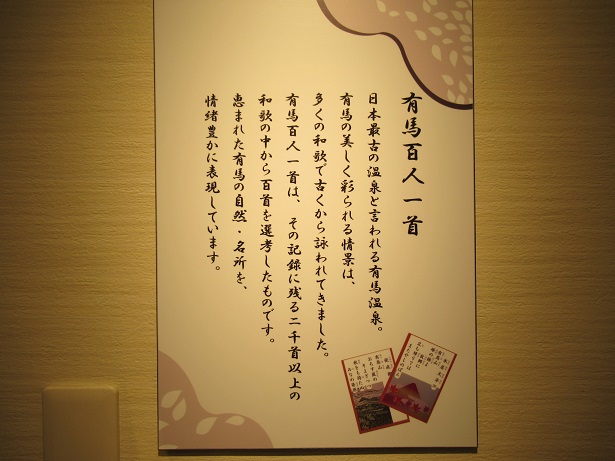 有馬百人一首
日本最古の温泉と言われる有馬温泉。
有馬の美しく彩られる情景は、
多くの和歌で古くから詠われてきました。
有馬百人一首は、その記録に残る二千首以上の
和歌の中から百首を選考したものです。
恵まれた有馬の自然・名所を、
情緒豊かに表現しています。